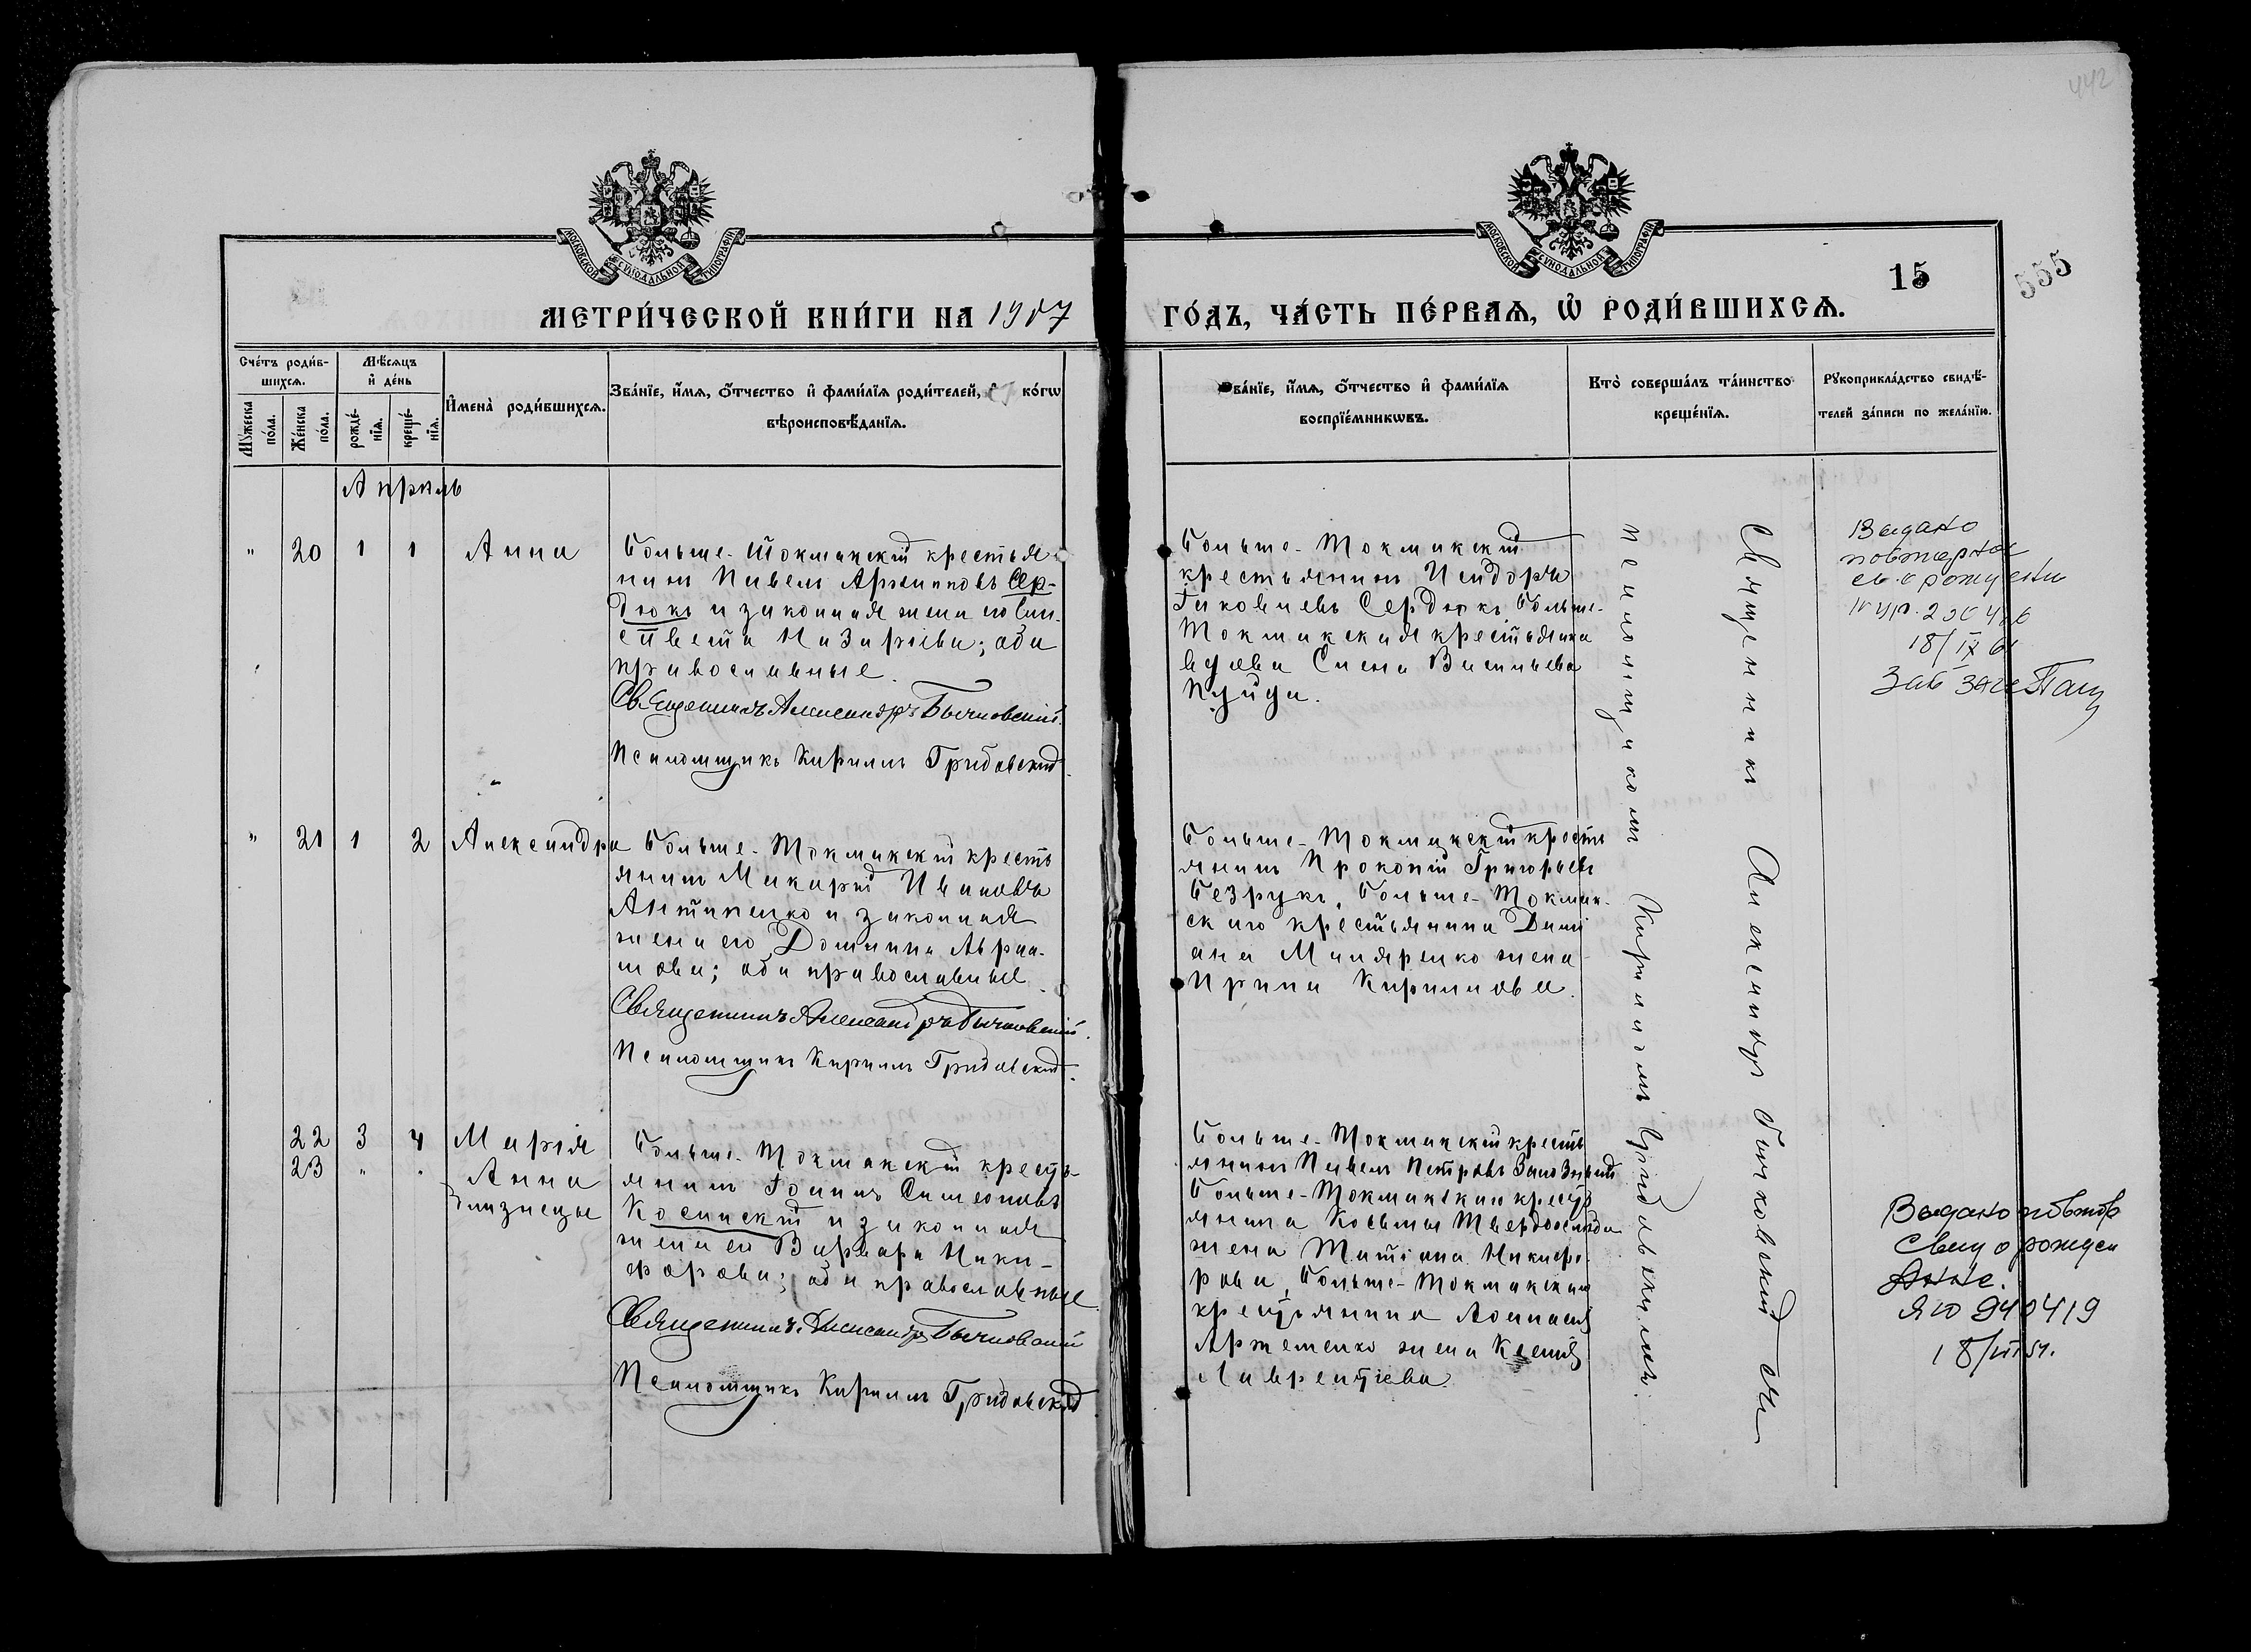 442
МОСКОВСКОЙ СѴНОДАЛЬНОЙ ТИПОГРАФІИ
МОСКОВСКОЙ СѴНОДАЛЬНОЙ ТИПОГРАФІИ
15
555
МЕТРИ́ЧЕСКОЙ КНИ́ГИ НА 1907
ГО́ДЪ, ЧА́СТЬ ПЕ́РВАѦ, Ѡ҆ РОДИ́ВШИХСѦ.
Сче́тъ роди́в-
шихсѧ.
Мꙋ́жеска
по́ла.
Же́нска
по́ла.
Мѣ́сѧцъ
и҆ де́нь
рожде́-
нїѧ.
креще́-
нїѧ.
И҆мена̀ роди́вшихсѧ.
Зва́нїе, и҆́мѧ, ѻ҆́тчество и҆ фами́лїѧ роди́телей, и҆ ко́гѡ
вѣроисповѣ́данїѧ.
Зва́нїе, и҆́мѧ, ѻ҆́тчество и҆ фами́лїѧ
воспрїе́мникѡвъ.
Кто̀ соверша́лъ та́инство
креще́нїѧ.
Рꙋкоприкла́дство свидѣ́-
телей за́писи по жела́нїю.
Апрѣль
" 20 1 1 Анна
Больше-Токмакскій крестья-
нинъ Павелъ Архиповъ Сер-
дюкъ и законная жена его Ели-
савета Назарiева; оба
православные.
Священникъ Александръ Бычковскій.
Псаломщикъ Кириллъ Гридовскій.
Больше-Токмакскій
крестьянинъ Исидоръ
Іаковлевъ Сердюкъ, Больше-
Токмакская крестьянка
вдова Елена Васильева
Пуйда.
Выдано
повторное
св. о рождении
18/IX 61
Зав загс
" 21 1 2 Александра
Больше-Токмакскій кресть
янинъ Макарій Ивановъ
Антипенко и законная
жена его Домника Авраа-
мова; оба православные.
Священникъ Александръ Бычковскій.
Псаломщикъ Кириллъ Гридовскій.
Больше-Токмакскій кресть
янинъ Прокопій Григорьевъ
Безрукъ, Больше-Токмак-
скаго крестьянина Дамі
ана жена
Ирина Кириллова.
22 3 4 Марія
23 " " Анна
близнецы
Больше-Токмакскій кресть-
янинъ Іоаннъ Симеоновъ
Косинскій и законная
жена его Варвара Ники-
форова; оба православные.
Священникъ Александръ Бычковскій
Псаломщикъ Кириллъ Гридовскій
Больше-Токмакскій кресть
янинъ Павелъ Петровъ
Больше-Токмакскаго кресть
янина Косьмы
жена Татіана Никифо-
рова, Больше-Токмакскаго
крестьянина Аѳанасія
Артеменко жена Ксенія
Лаврентіева.
Священникъ Александръ Бычковскій съ
псаломщикомъ Кирилломъ Гридовскимъ.
Выдано повтор
свид о рожден
Анне.
ЯЮ 940419